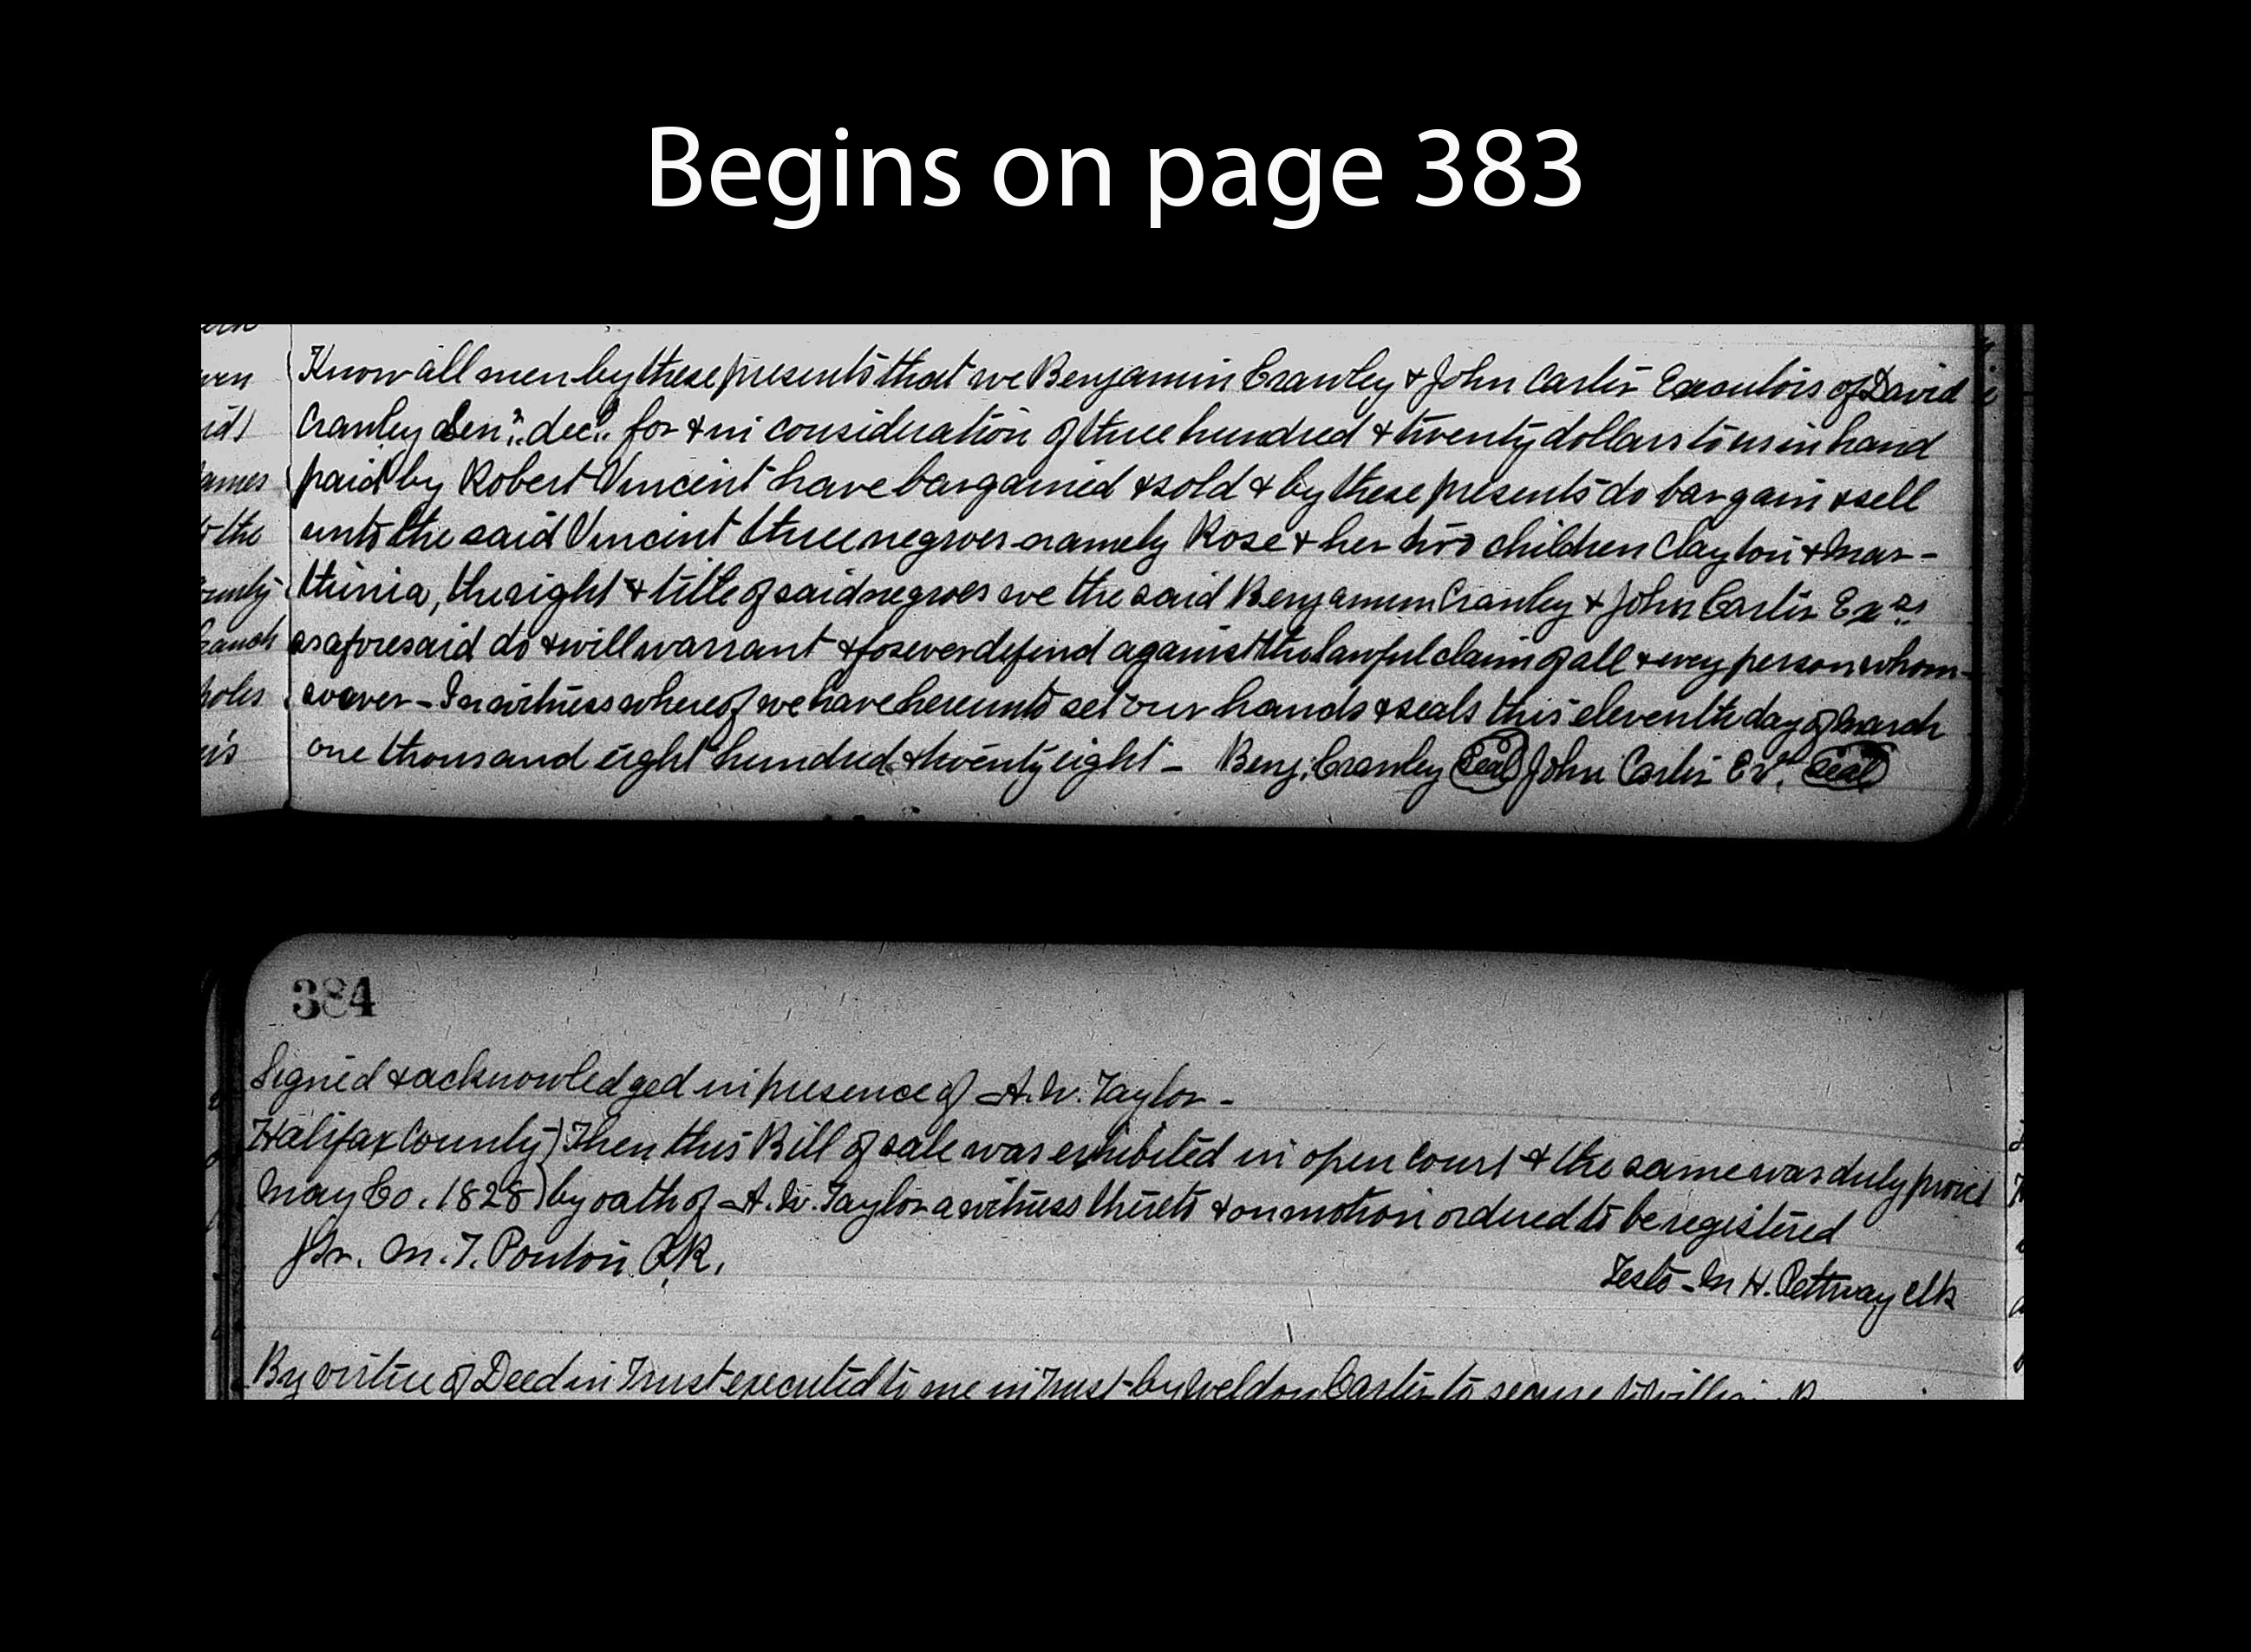 Begins on page 383
Know all men by these presents that we Benjamin Crawley & John Carter Executors of David
Crawley Senr. decd. for & in consideration of three hundred & twenty dollars to us in hand
paid by Robert Vincent have bargained & sold & by these presents do bargain & sell
unto the said Vincent three negroes namely Rose & her two children Clayton & Mar-
thinia, the right & title of said negroes we the said Benjamin Crawley & John Carter Exrs.
as aforesaid do & will warrant & forever defend against the lawful claim of all & every person whom-
soever - In witness whereof we have hereunto set our hands & seals this eleventh day of March
one thousand eight hundred & twenty eight - Benj. Crawley Seal John Carter Exr. Seal
384
Signed & acknowledged in presence of A. W. Taylor -
Halifax County) Then this Bill of sale was exhibited in open court & the same was duly proved
May Co. 1828) by oath of A. W. Taylor a witness thereto & on motion ordered to be registered
Pr. M. T. Ponton P.R.
Teste - M H. Pettway Clk
By virtue of Deed in Trust executed to me in Trust by Weldon Carter to secure